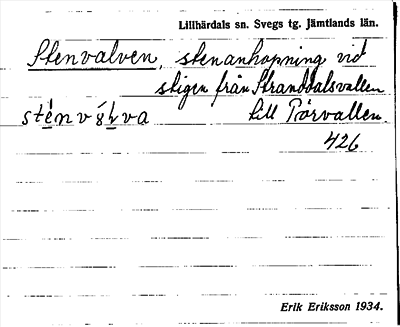 Lillhärdals sn. Svegs tg. Jämtlands län.
Stenvalven, stenanhopning vid
stigen från Stranddalsvallen
till Törvallen.
426
Erik Eriksson 1934.